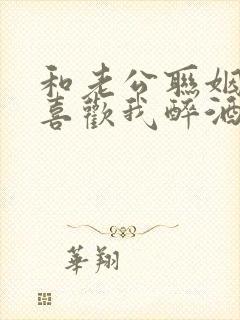 和老公聯姻
喜歡我醉酒
華翔